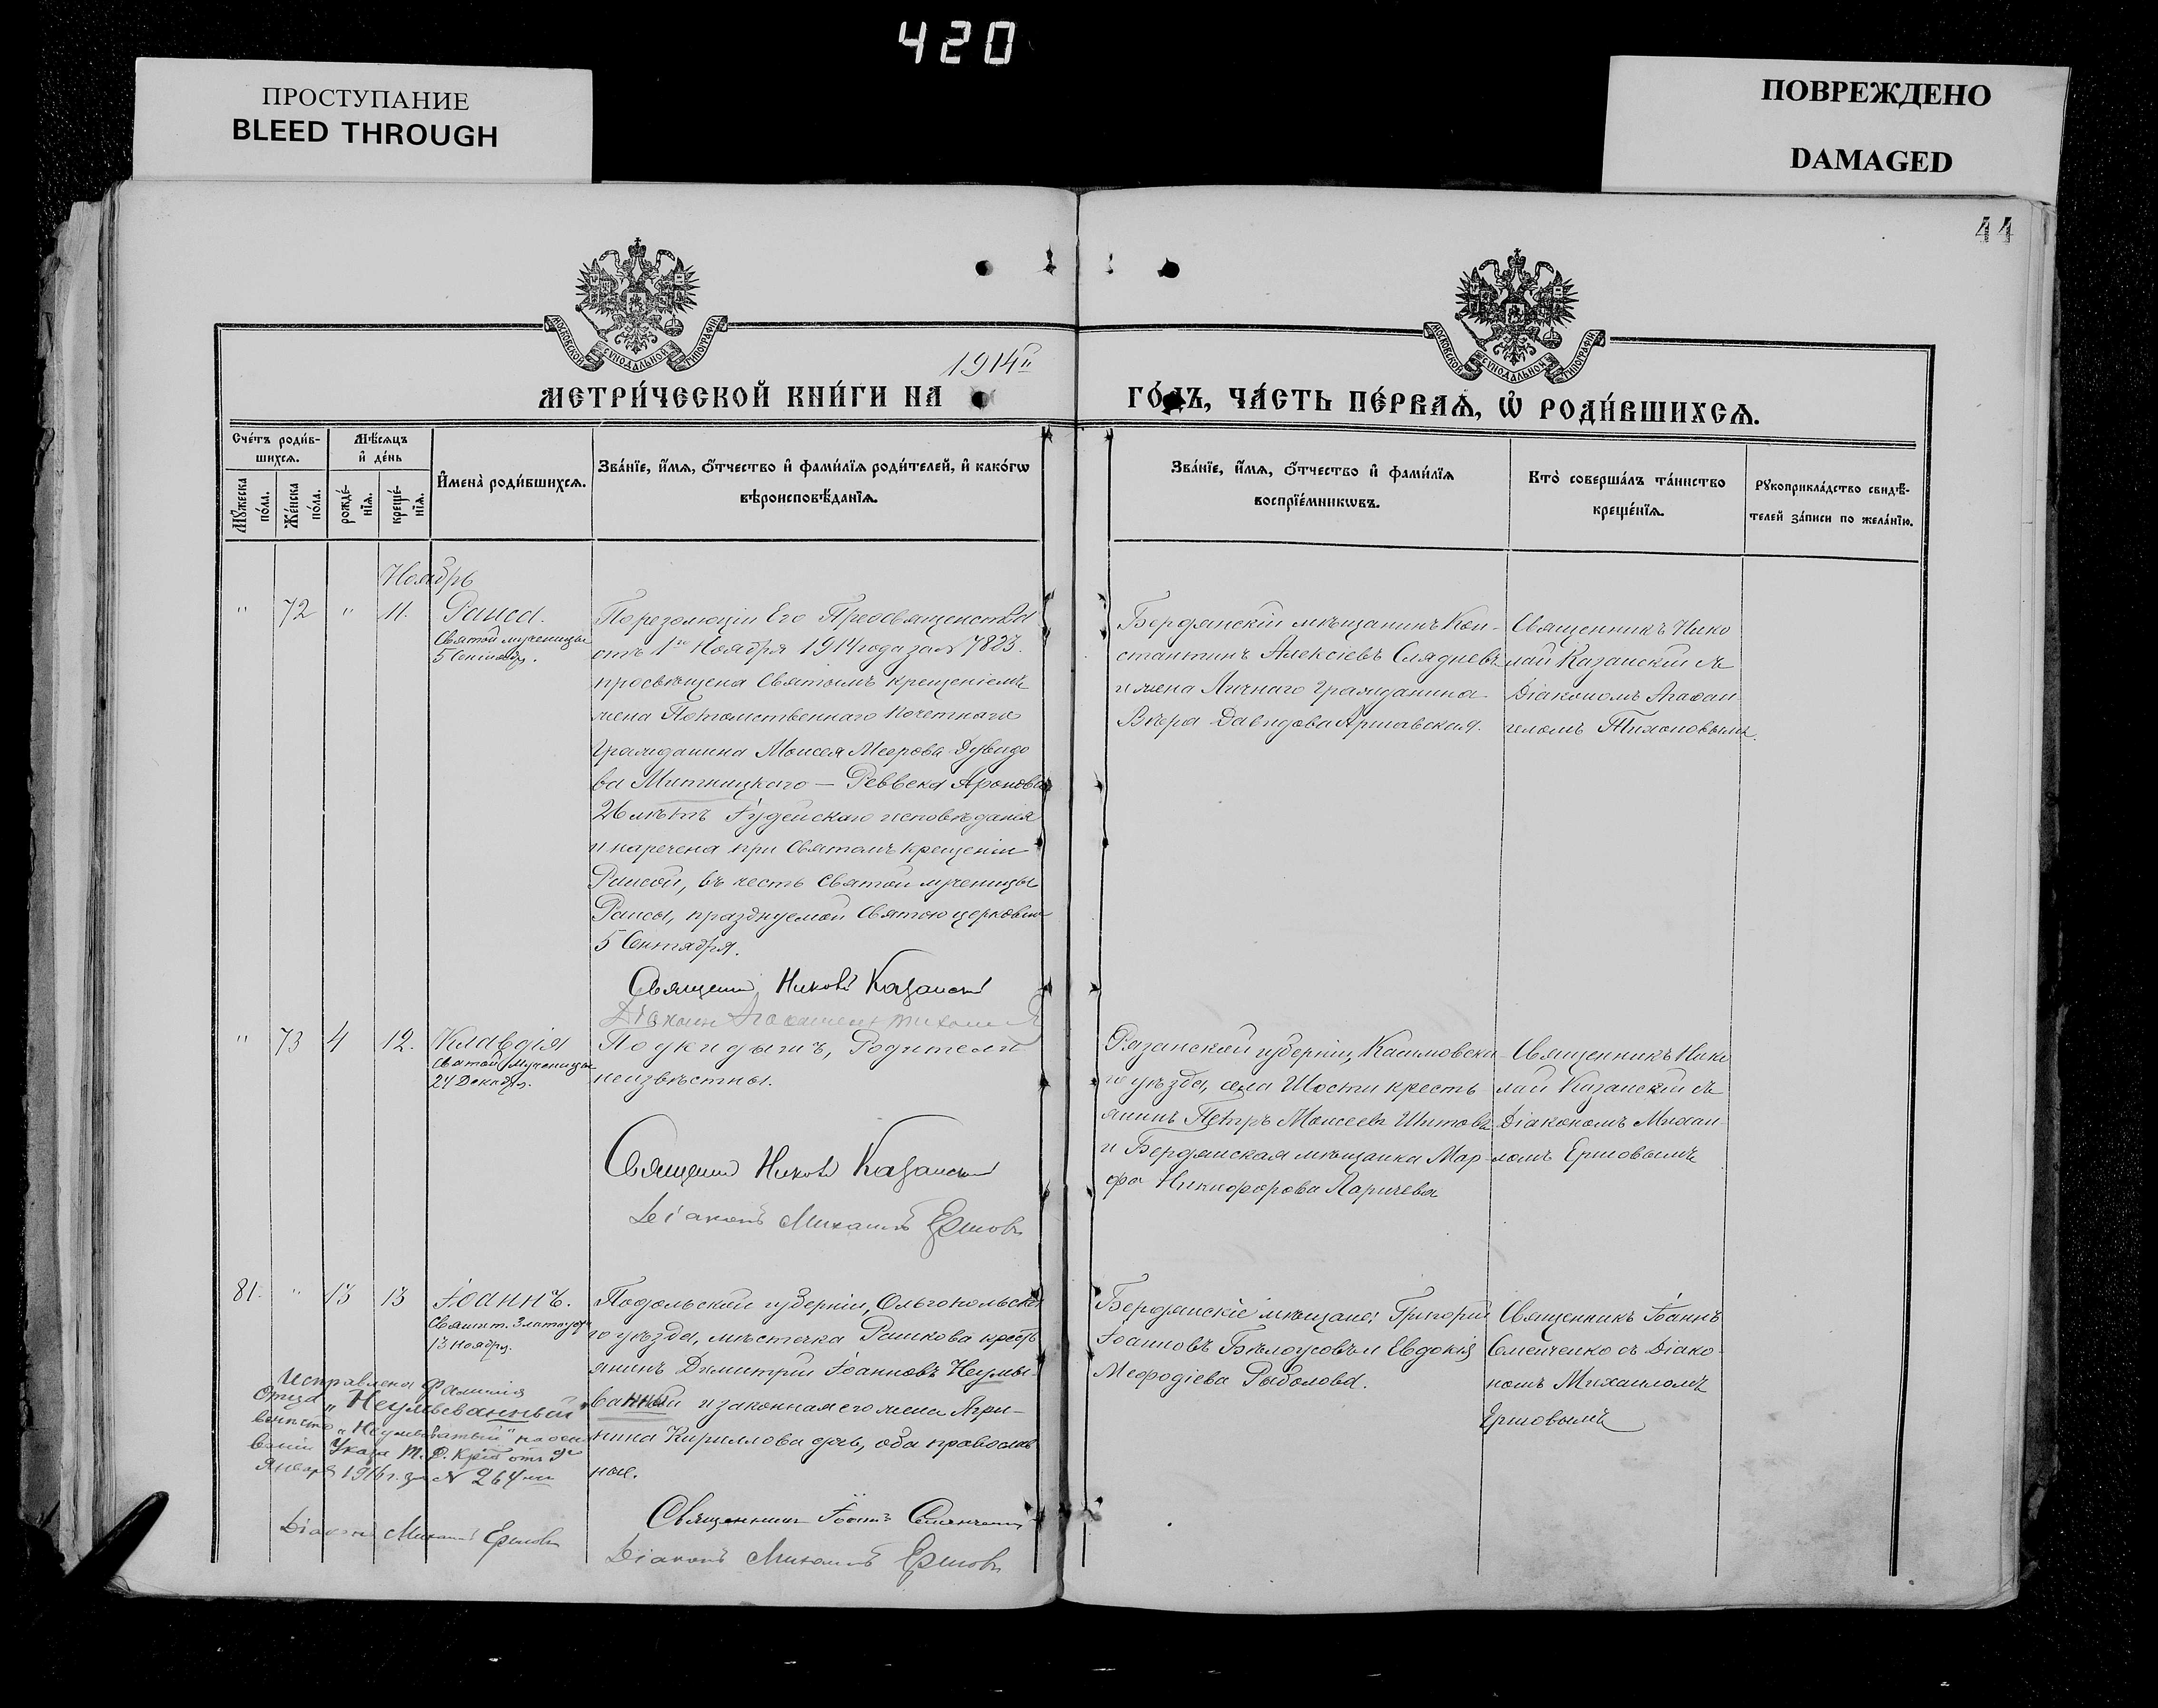 420
ПРОСТУПАНИЕ
BLEED THROUGH
ПОВРЕЖДЕНО
DAMAGED
44
МОСКОВСКОЙ СѴНОДАЛЬНОЙ ТИПОГРАФІИ
МОСКОВСКОЙ СѴНОДАЛЬНОЙ ТИПОГРАФІИ
1914
МЕТРИ́ЧЕСКОЙ КНИ́ГИ НА ГО́ДЪ, ЧА́СТЬ ПЕ́РВАѦ, Ѽ РОДИ́ВШИХСѦ.
Сче́тъ роди́в-
шихсѧ.
Мꙋ́жеска по́ла.
Же́нска по́ла.
Мѣ́сѧцъ
и҆ де́нь
рожде́-
нїѧ.
креще́-
нїѧ.
И҆мена̀ роди́вшихсѧ.
Зва́нїе, и҆́мѧ, ѻ҆́тчество и҆ фами́лїѧ роди́телей, и҆ како́гѡ
вѣроисповѣ́данїѧ.
Зва́нїе, и҆́мѧ, ѻ҆́тчество и҆ фами́лїѧ
воспрїе́мникѡвъ.
Кто̀ соверша́лъ та́инство
креще́нїѧ.
Рꙋкоприкла́дство свидѣ́-
телей за́писи по жела́нїю.
Ноябрь
" 72 " 11.
Раиса.
Святой мученицы
5 Сентября.
По резолюціи Его Преосвященства
отъ 1го Ноября 1914 года за № 7823.
просвѣщена Святымъ крещеніемъ
жена Потомственнаго Почетнаго
Гражданина Моисея Меерова Дувидо
ва Митницкаго — Реввека Аронова
26 лѣтъ Іудейскаго исповѣданія
и наречена при Святомъ крещеніи
Раисой, въ честь Святой мученицы
Раисы, празднуемой Святою церковью
5 Сентября.
Священн. Николай Казанскій
Діаконъ Агаѳангелъ Тихоновъ
Бердянскій мѣщанинъ Кон-
стантинъ Алексіевъ Слядневъ
и жена Личнаго Гражданина
Вѣра Давидова Аршавская.
Священникъ Нико
лай Казанскій съ
Діакономъ Агаѳан
геломъ Тихоновымъ.
" 73 4 12.
Клавдія
Святой мученицы
24 Декабря.
Подкидышъ, Родители
неизвѣстны.
Священн. Николай Казанскій
Діаконъ Михаилъ Ершовъ
Рязанской губерніи, Касимовска-
го уѣзда, села Шости кресть
янинъ Петръ Моисеевъ Шитовъ
и Бердянская мѣщанка Мар-
фа Никифорова Ларичева
Священникъ Нико
лай Казанскій съ
Діакономъ Михаи-
ломъ Ершовымъ
81. " 13 13
Іоаннъ.
Святит. Златоуста
13 Ноября.
Подольской губерніи, Ольгопольска-
го уѣзда, мѣстечка Рашкова кресть
янинъ Димитрій Іоанновъ Неумы-
ванный и законная его жена Агри-
пина Кириллова дчь, оба православ
ные.
Священникъ Іоаннъ Семенченко
Діаконъ Михаилъ Ершовъ
Исправлена фамилія
отца „Неумываннный"
вмѣсто „Неумыватый" на осно
ваніи Указа Т. Д. Кр. отъ 9го
Января 1916 г. за № 264
Діаконъ Михаилъ Ершовъ
Бердянскіе мѣщане: Григорій
Іоанновъ Бѣлоусовъ и Евдокія
Меѳодіева Рыболова.
Священникъ Іоаннъ
Семенченко съ Діако-
номъ Михаиломъ
Ершовымъ